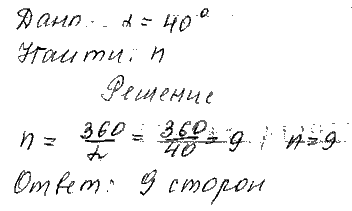 Дано: α = 40°
Найти: n
Решение
n = 360/α = 360/40 = 9 ; n = 9
Ответ: 9 сторон